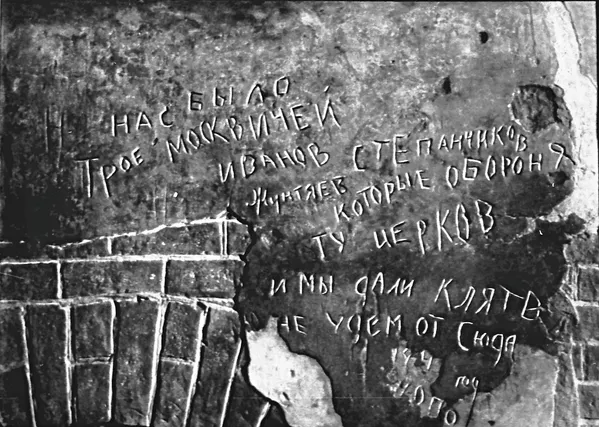 НАС БЫЛО
ТРОЕ МОСКВИЧЕЙ
ИВАНОВ СТЕПАНЧИКОВ
Жунтяев КОТОРЫЕ ОБОРОНЯ
ТУ ЦЕРКОВ
И МЫ ДАЛИ КЛЯТВ
НЕ УДЕМ ОТ СЮДА
год